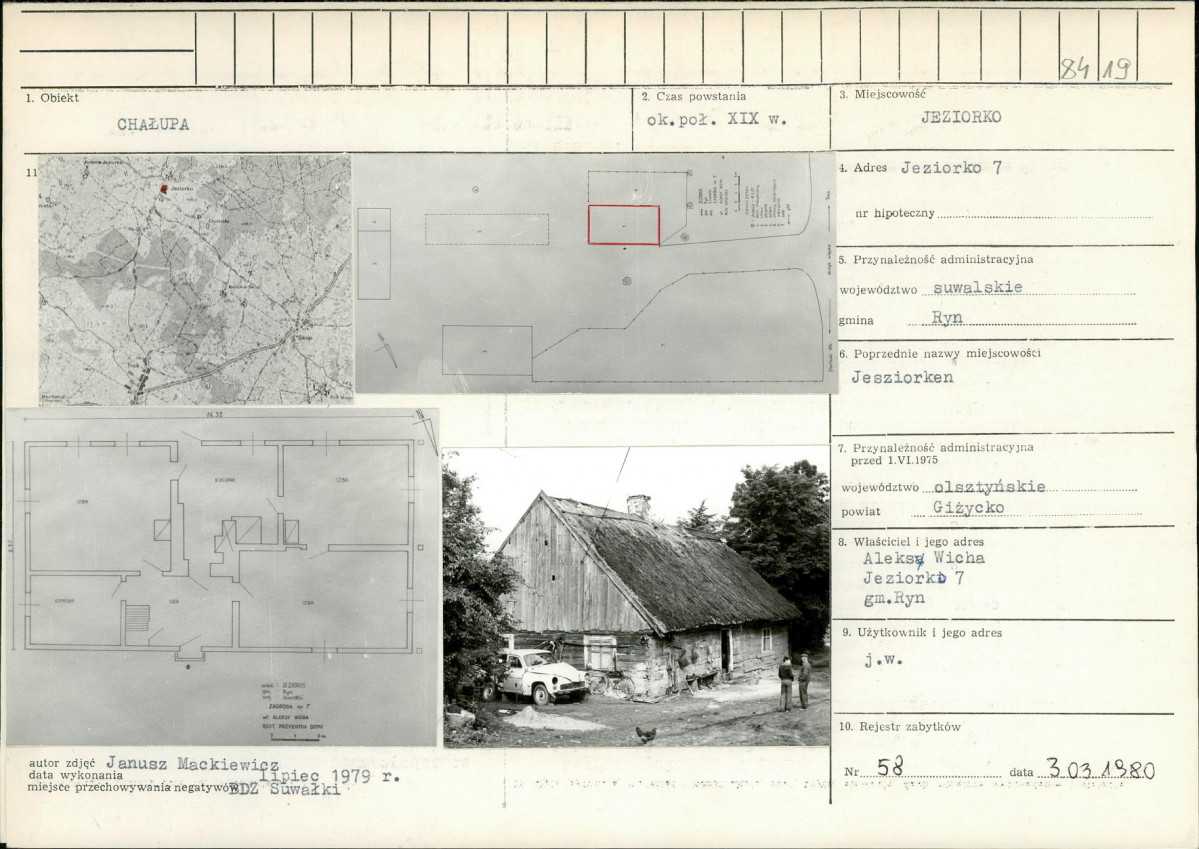 84 19
1. Obiekt
CHAŁUPA
2. Czas powstania
ok.poł. XIX w.
3. Miejscowość
JEZIORKO
11
4. Adres Jeziorko 7
nr hipoteczny
5. Przynależność administracyjna
województwo suwalskie
gmina Ryn
6. Poprzednie nazwy miejscowości
Jesziorken
7. Przynależność administracyjna
przed 1.VI.1975
województwo olsztyńskie
powiat Giżycko
8. Właściciel i jego adres
Aleksy Wicha
Jeziorko 7
gm.Ryn
9. Użytkownik i jego adres
j.w.
10. Rejestr zabytków
Nr 58 data 3.03.1980
Jeziorko
Skop
Trok
16.32
IZBA
KUCHNIA
IZBA
KOMORA
SIEŃ
IZBA
JEZIORKO
Ryn
ZAGRODA nr 7
wł. ALEKSY WICHA
RZUT PRZYZIEMIA DOMU
autor zdjęć Janusz Mackiewicz
data wykonania lipiec 1979 r.
miejsce przechowywania negatywów BDZ Suwałki